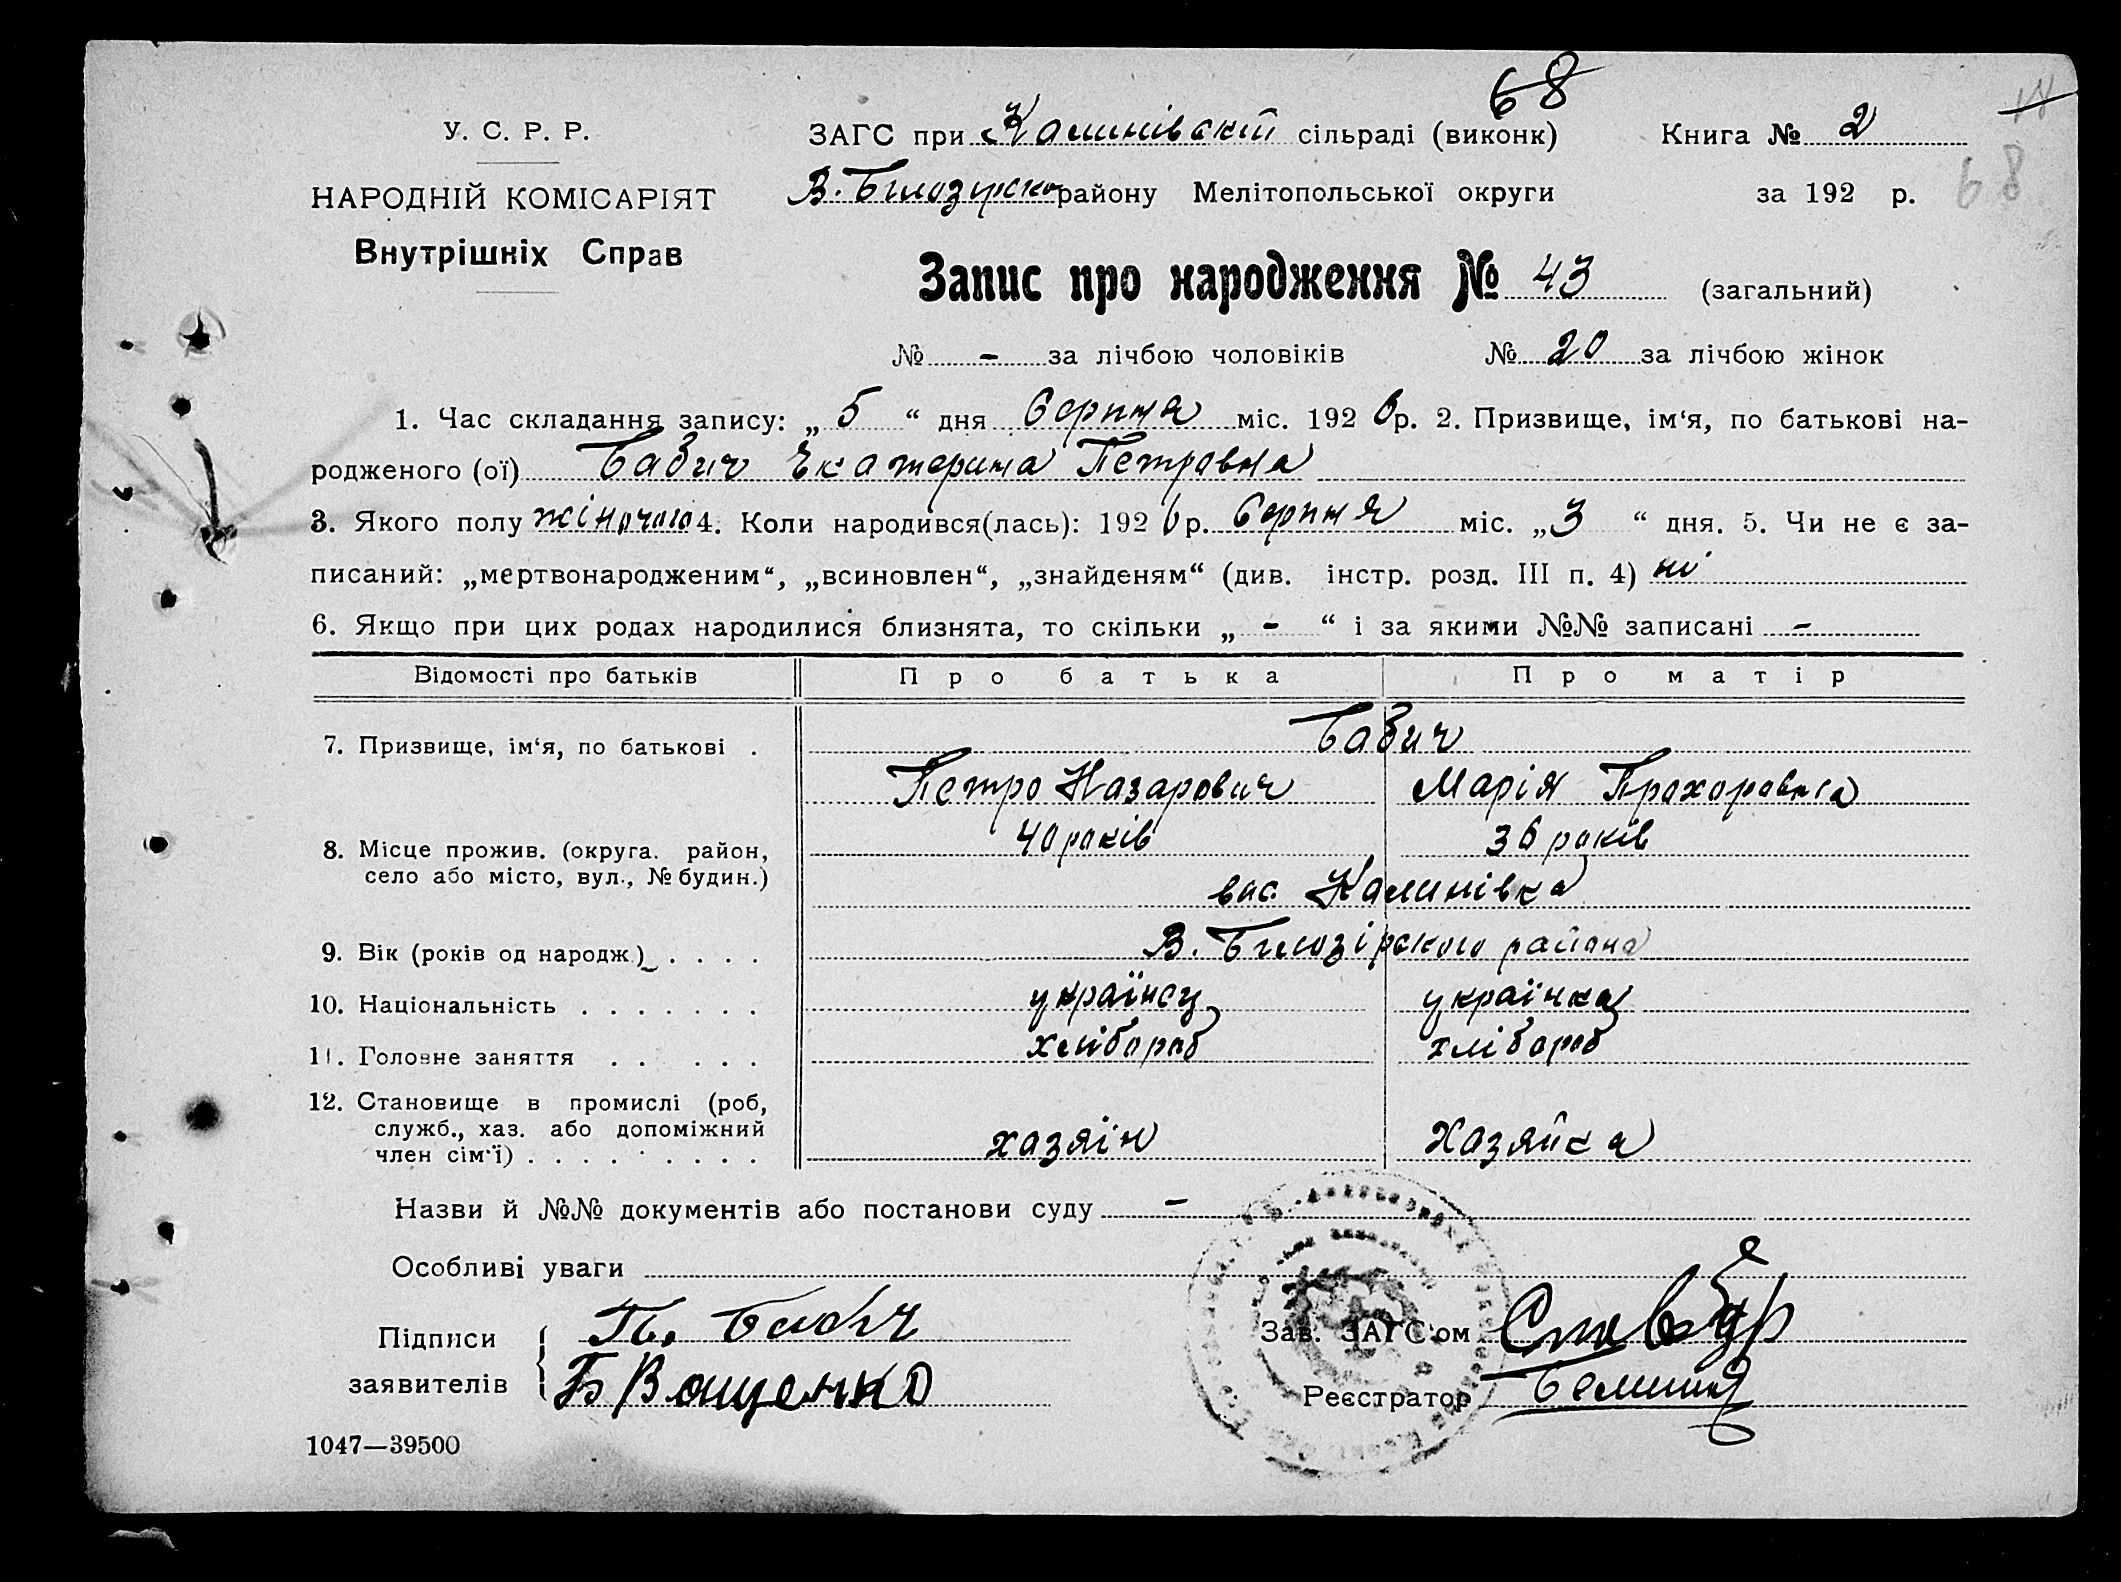 68
У. С. Р. Р.
ЗАГС при Калинівскій сільраді (виконк)
Книга № 2
18
НАРОДНІЙ КОМІСАРІЯТ
В. Білозірско району Мелітопольської округи
за 192 р.
68
Внутрішніх Справ
Запис про народження № 43 (загальний)
№ - за лічбою чоловіків № 20 за лічбою жінок
1. Час складання запису: „ 5 “ дня Серпня міс. 192 6 р. 2. Призвище, ім‘я, по батькові на-
родженого (ої) Бабич Екатерина Петравна
3. Якого полу жіночого 4. Коли народився(лась): 192 6 р. Серпня міс. „ 3 “ дня. 5. Чи не є за-
писаний: „мертвонародженим“, „всиновлен“, „знайденям“ (див. інстр. розд. III п. 4) ні
6. Якщо при цих родах народилися близнята, то скільки „ - “ і за якими №№ записані -
Відомості про батьків Про батька Про матір
7. Призвище, ім‘я, по батькові . Бабич
Петро Назарович Марія Прохоравна
40 років 36 років
8. Місце прожив. (округа. район,
село або місто, вул., № будин.)
вас. Калинівка
9. Вік (років од народж.) . . . . В. Білозірского района
10. Національність . . . . . . . українец українка
11. Головне заняття . . . . . . хлібороб хлібороб
12. Становище в промислі (роб,
служб., хаз. або допоміжний
член сім‘ї) . . . . . . . . . хазяін Хазяйка
Назви й №№ документів або постанови суду -
Особливі уваги
Підписи П. Бабич
Зав. ЗАГС‘ом
заявителів Б Ващенко
Реєстратор
1047—39500